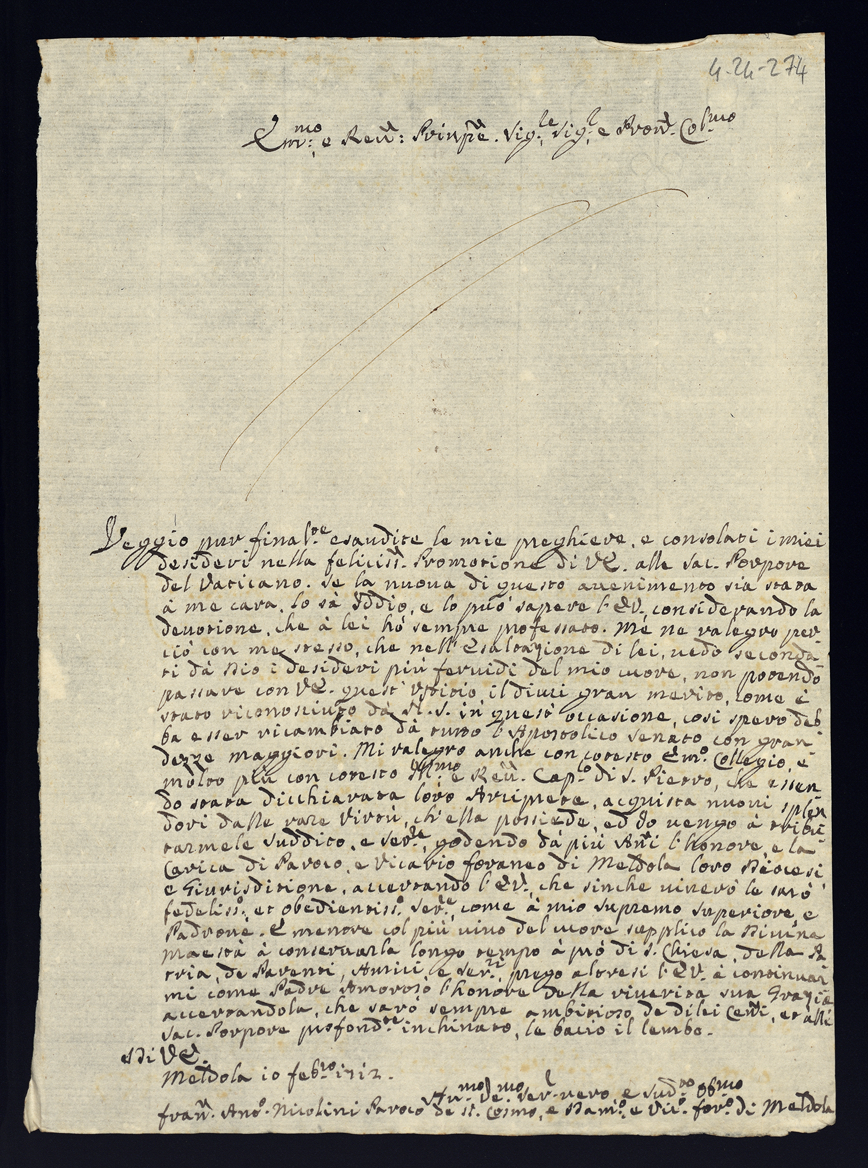 4-24-274
Em.mo e Reu.: Prinpe. Sig.le Sig.l e Pron. Col.mo
Veggio pur final.te esaudite le mie preghiere, e consolati i miei
desideri nella feliciss. Promotione di VE. alle Sac. Porpore
del Vaticano. Se la nuova di questo avvenimento sia stata
à me cara, lo sà Iddio, e lo può sapere l'EV. considerando la
devotione, che à lei hò sempre professato. Me ne ralegro per
ciò con me stesso, che nell'Esaltazione di lei, uedo seconda-
ti dà Dio i desideri più feruidi del mio cuore, non potendo
passare con VE. quest'Vfficio, il di cui gran merito, come è
stato riconosciuto dà N. S. in quest'occasione, così spero deb-
ba esser ricambiato dà tutto l'Apostolico Senato con gran-
dezze maggiori. Mi ralegro anche con cotesto Em.o Collegio, e
molto più con cotesto Ill.mo e Reu. Cap.lo di S. Pietro, che essen-
do stata dicchiarata loro Arciprete, acquista nuoui splen-
dori dalle rare Virtù, ch'ella possiede, ed Io uengo à tribu-
tarmele suddito, e ser.re, godendo dà più Anni l'honore, e la
Carica di Paroco, e Vicario foraneo di Meldola loro Diocesi
e Giurisditione, accertando l'EV., che sinche uiuerò le sarò
fedeliss.o, et obedientiss.o ser.re, come à mio supremo superiore, e
Padrone. E mentre col più uiuo del cuore supplico la Diuina
maestà à conseruarla longo tempo à prò di S. Chiesa, della Pa-
tria, de Parenti, Amici, e ser.ri, prego altresi l'EV. à continuar-
mi come Padre Amoroso l'honore della riuerita sua Grazia
accertandola, che sarò sempre ambitioso de di lei Cenni, et alle
Sac. Porpore profond.te inchinato, le bacio il lembo.
Di VE.
Meldola 10 feb.ro 1712.
Hu.mo De.mo Ser. vero, e Sud.to Ob.mo
Fran. Ant.o Nicolini Paroco de SS. Cosmo, e Dam.o e Vic.o for.o di Meldola